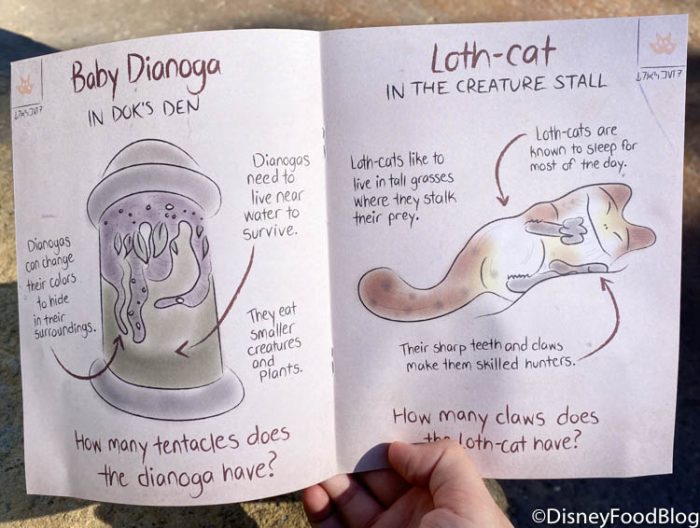 Baby Dianoga
IN DOK'S DEN
Dianogas
need to
live near
water to
survive.
Dianogas
can change
their colors
to hide
in their
surroundings.
They eat
smaller
creatures
and
plants.
How many tentacles does
the dianoga have?
Loth-cat
IN THE CREATURE STALL
Loth-cats like to
live in tall grasses
where they stalk
their prey.
Loth-cats are
known to sleep for
most of the day.
Their sharp teeth and claws
make them skilled hunters.
How many claws does
the loth-cat have?
©DisneyFoodBlog